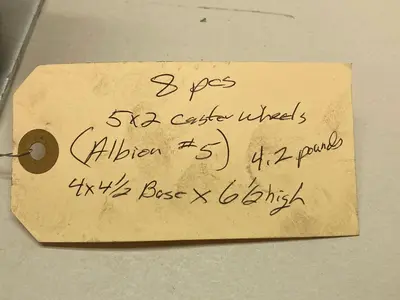 8 pcs
5x2 caster wheels
(Albion #5) 4.2 pounds
4x4 1/2 Base x 6 1/2 high